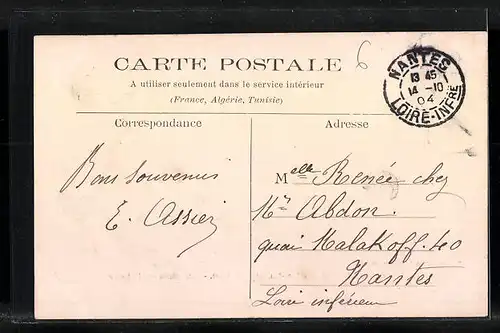 CARTE POSTALE
A utiliser seulement dans le service intérieur
(France, Algérie, Tunisie)
6
NANTES
13 45
14 -10
04
LOIRE-INFRE
Correspondance
Adresse
Bons souvenirs
E. Assier
Melle Renée chez
Mr Abdon.
quai Malakoff. 40
Nantes
Loire inférieure